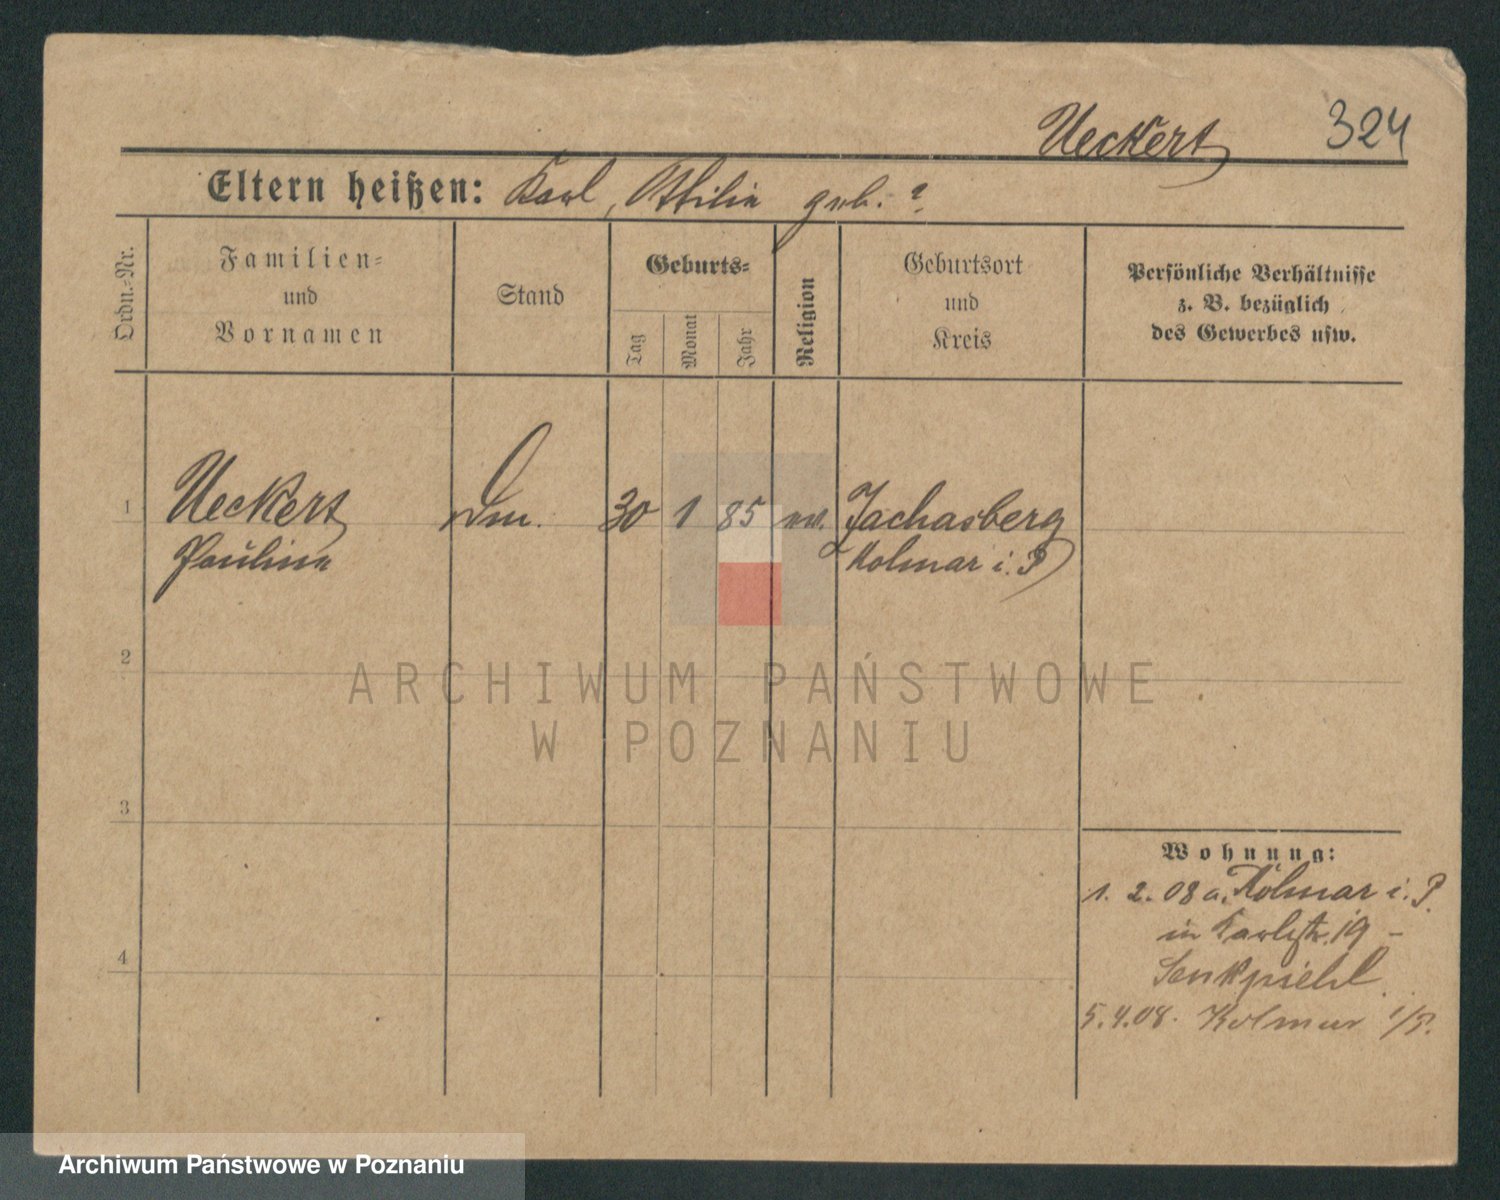 Ueckert 324
Eltern heißen: Karl, Ottilie geb. ?
Ordn.-Nr.
Familien-
und
Vornamen
Stand
Geburts-
Tag
Monat
Jahr
Religion
Geburtsort
und
Kreis
Persönliche Verhältnisse
z. B. bezüglich
des Gewerbes usw.
1 Ueckert 30 1 85 ev. Jachasberg
Pauline Kolmar i. P
2
3
4
Wohnung:
1. 2. 08 a. Kolmar i. P.
in Karlstr. 19 -
Senkpiehl
5.4.08. Kolmar i/P.
ARCHIWUM PAŃSTWOWE
W POZNANIU
Archiwum Państwowe w Poznaniu